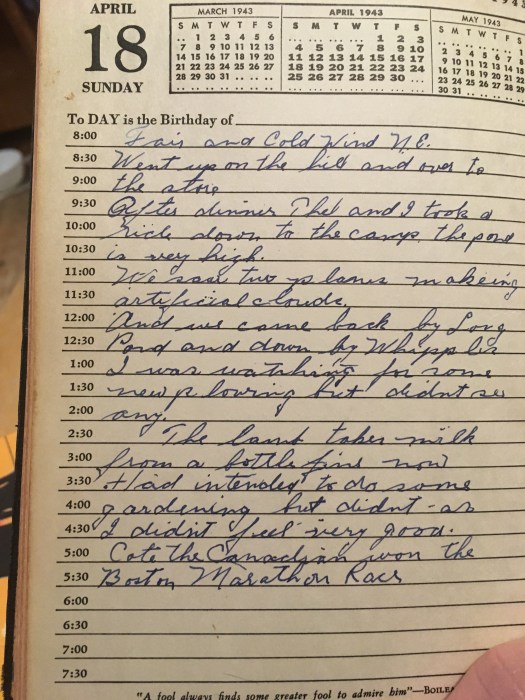 APRIL
18
SUNDAY
MARCH 1943
S M T W T F S
.. 1 2 3 4 5 6
7 8 9 10 11 12 13
14 15 16 17 18 19 20
21 22 23 24 25 26 27
28 29 30 31 .. .. ..
APRIL 1943
S M T W T F S
1 2 3
4 5 6 7 8 9 10
11 12 13 14 15 16 17
18 19 20 21 22 23 24
25 26 27 28 29 30 ..
MAY 1943
S M T W T F S
2 3 4 5 6 7
9 10 11 12 13 14 15
16 17 18 19 20 21 22
23 24 25 26 27 28 29
30 31 .. .. ..
To DAY is the Birthday of
8:00 Fair and Cold Wind N.E.
8:30 Went up on the hill and over to
9:00 the store
9:30 After dinner Thel and I took a
10:00 ride down to the camp. the pond
10:30 is very high.
11:00 We saw two planes makeing
11:30 artificial clouds.
12:00 And we came back by Long
12:30 Pond and down by
1:00 I was watching for some
1:30 new plowing but didnt see
2:00 any.
2:30 The lamb takes milk
3:00 from a bottle fine now
3:30 Had intended to do some
4:00 gardening but didnt - as
4:30 I didnt feel very good.
5:00 Cote the Canadian won the
5:30 Boston Marathon Race
6:00
6:30
7:00
7:30
"A fool always finds some greater fool to admire him"—BOILEA